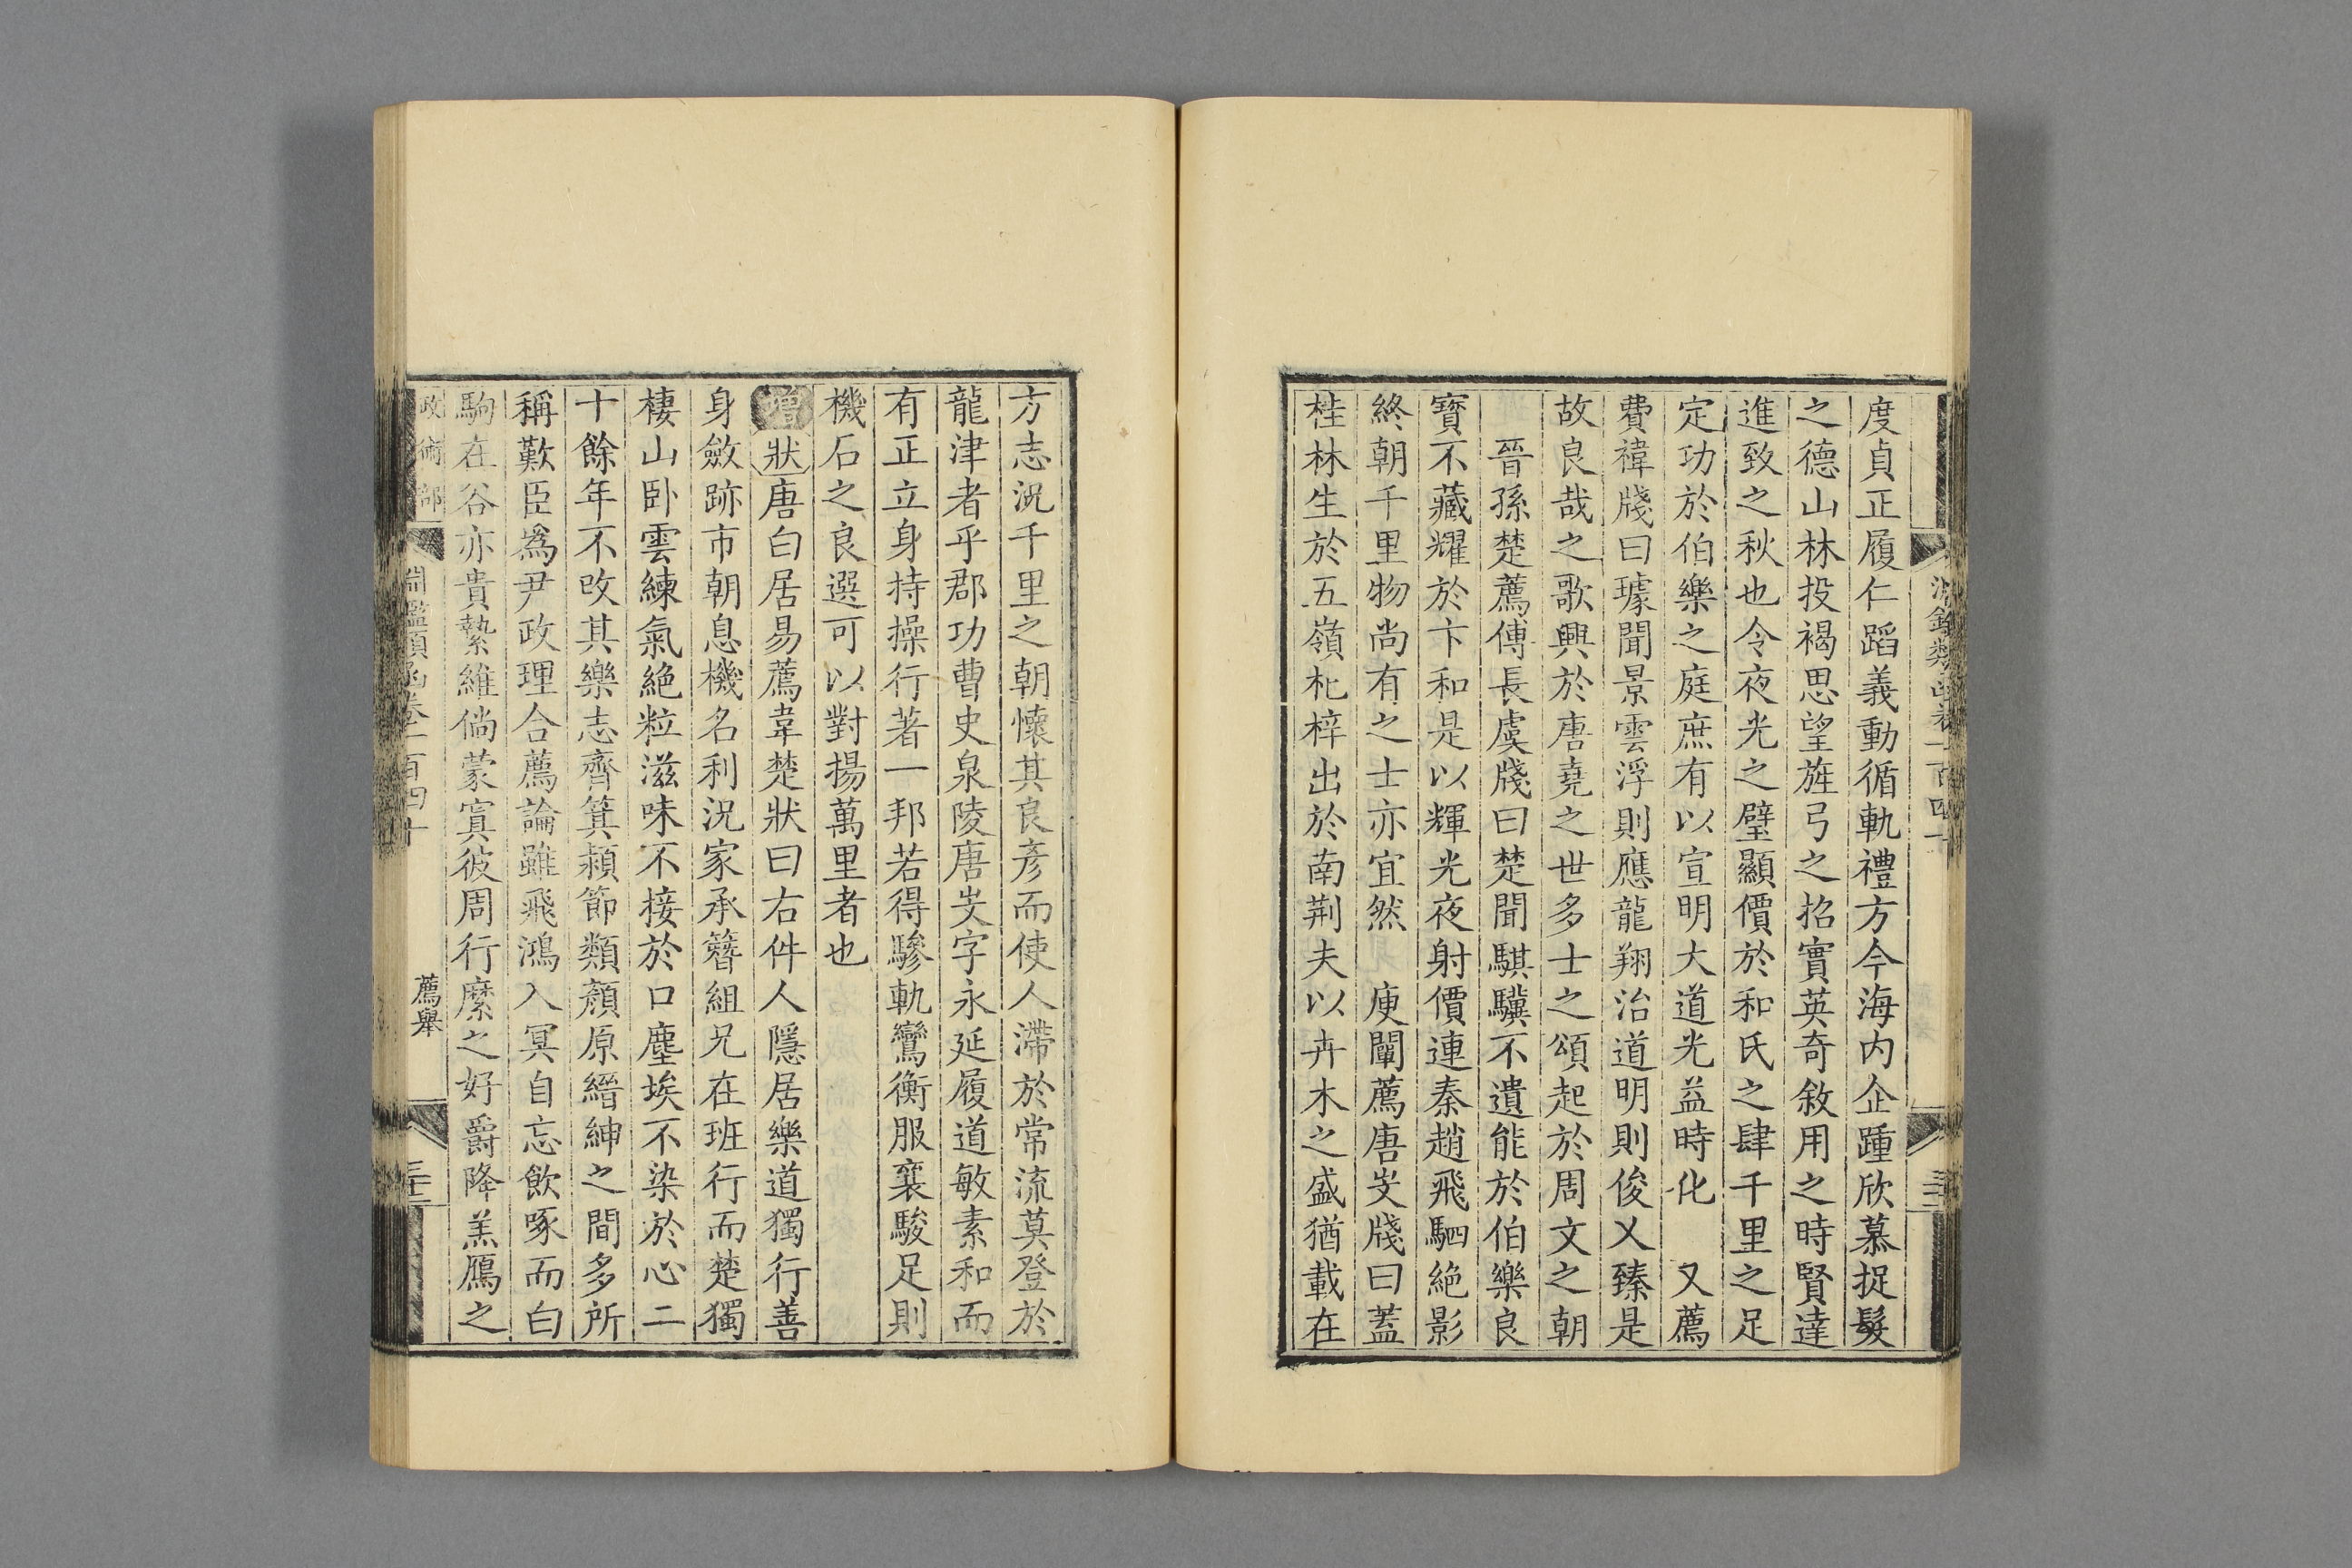 度貞正履仁蹈義動循軌禮方今海内企踵欣慕捉髮
之德山林投褐思望旌弓之招實英奇敘用之時賢達
進致之秋也令夜光之璧顯價於和氏之肆千里之足
定功於伯樂之庭庶有以宣明大道光益時化　又薦
費禕牋曰璩聞景雲浮則應龍翔治道明則俊乂臻是
故良哉之歌興於唐堯之世多士之頌起於周文之朝
晉孫楚薦傅長虞牋曰楚聞騏驥不遺能於伯樂良
寳不藏耀於卞和是以輝光夜射價連秦趙飛駟絕影
終朝千里物尚有之士亦宜然　庾闡薦唐岁牋曰蓋
桂林生於五嶺杞梓出於南荆夫以卉木之盛猶載在
方志況千里之朝懷其良彦而使人滯於常流莫登於
龍津者乎郡功曹史泉陵唐岁字永延履道敏素和而
有正立身持操行著一邦若得驂軌鸞衡服襄駿足則
機石之良選可以對揚萬里者也
增 狀 唐白居易薦韋楚狀曰右件人隱居樂道獨行善
身斂跡市朝息機名利況家承簪組兄在班行而楚獨
棲山卧雲練氣絶粒滋味不接於口塵埃不染於心二
十餘年不改其樂志齊箕潁節類顏原縉紳之間多所
稱歎臣爲尹政理合薦論雖飛鴻入冥自忘飲啄而白
駒在谷亦貴縶維倘蒙寘彼周行縻之好爵降羔鴈之
政術部 淵鑑類函卷一百四十 薦舉